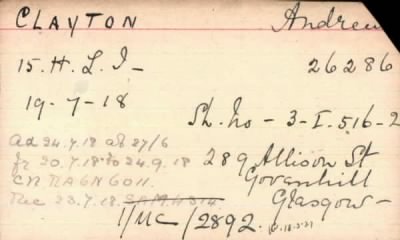 CLAYTON Andrew
15. H. L. I - 26286
19-7-18 Sh. No - 3-I.516-2
ad 24.7.18 ab 27/6
fr 20.7.18 to 24.9.18 289 Allison St
CN RA6N6011. Govanhill
Rec 23.7.18. SAMH314 Glasgow -
1/MC/2892.